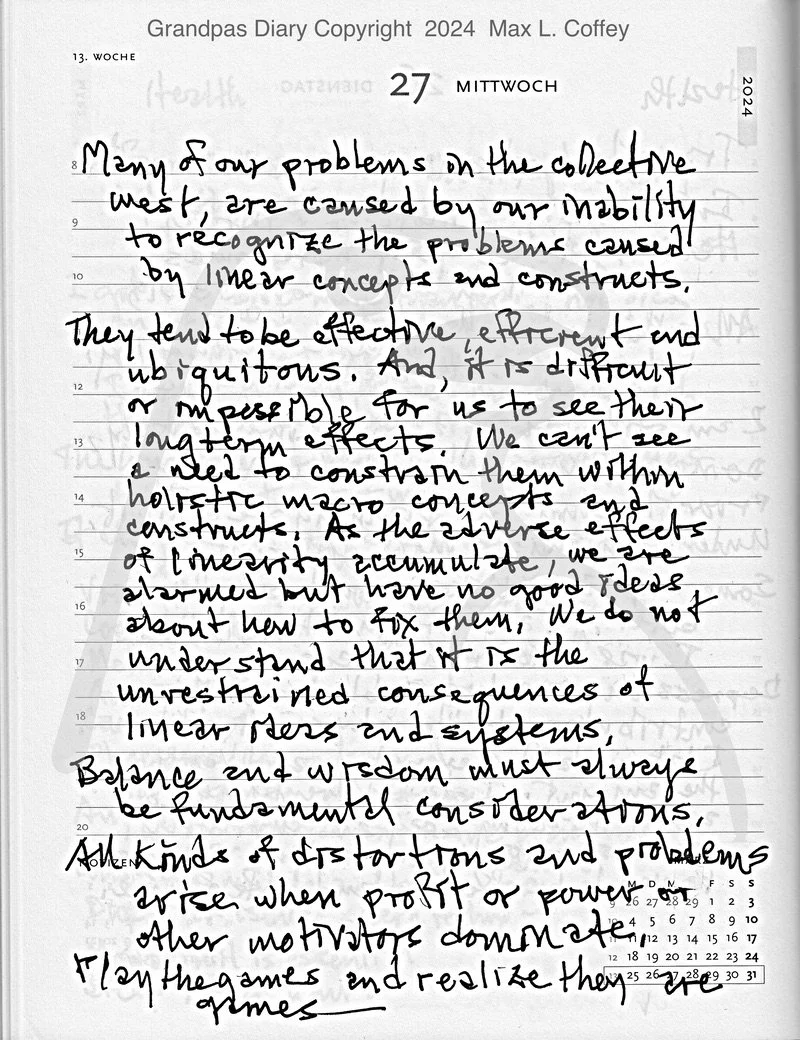 Grandpas Diary Copyright 2024 Max L. Coffey
13. WOCHE
27 MITTWOCH
2024
8 Many of our problems in the collective
west, are caused by our inability
9 to recognize the problems caused
10 by linear concepts and constructs.
They tend to be effective, efficient and
ubiquitous. And, it is difficult
12 or impossible for us to see their
13 long term effects. We can't see
a need to constrain them within
14 holistic macro concepts and
constructs. As the adverse effects
15 of linearity accumulate, we are
alarmed but have no good ideas
16 about how to fix them. We do not
17 understand that it is the
unrestrained consequences of
18 linear ideas and systems.
Balance and wisdom must always
be fundamental considerations.
20
All kinds of distortions and problems
NOTIZEN
M D M F S S
arise when profit or power or
9 26 27 28 29 1 2 3
other motivators dominate.
10 4 5 6 7 8 9 10
11 12 13 14 15 16 17
12 18 19 20 21 22 23 24
Play the games and realize they are
13 25 26 27 28 29 30 31
games